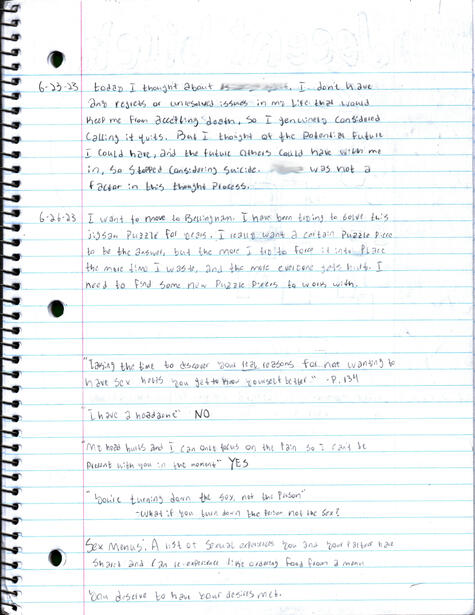 6-23-23 today I thought about I don't have
any regrets or unresolved issues in my life that would
keep me from accepting death, so I genuinely considered
calling it quits. But I thought of the potential future
I could have, and the future others could have with me
in, so stopped considering suicide. was not a
factor in this thought process.
6-26-23 I want to move to Bellingham. I have been trying to solve this
jigsaw puzzle for years. I really want a certain puzzle piece
to be the answer, but the more I try to force it into place
the more time I waste, and the more everyone gets hurt. I
need to find some new puzzle pieces to work with.
"Taking the time to discover your real reasons for not wanting to
have sex helps you get to know yourself better" -P.134
"I have a headache" NO
"My head hurts and I can only focus on the pain so I can't be
present with you in the moment" YES
"You're turning down the sex, not the person"
-What if you turn down the person not the sex?
Sex Menus: A list of sexual experiences you and your partner have
shared and can re-experience like ordering food from a menu
You deserve to have your desires met.